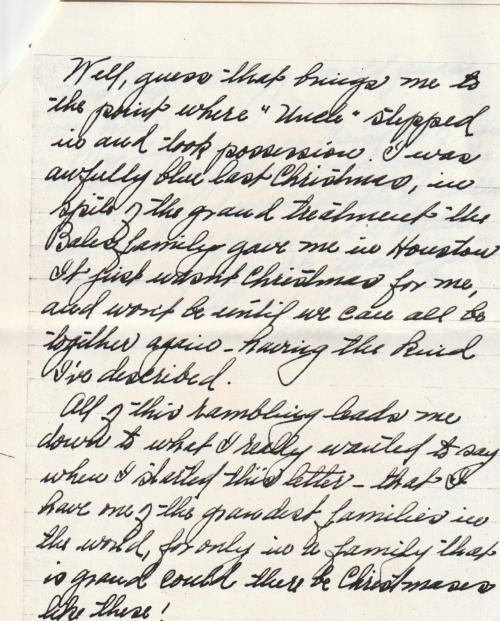 Well, guess that brings me to
the point where "Uncle" stepped
in and took possession. I was
awfully blue last Christmas, in
spite of the grand treatment the
Bales family gave me in Houston
It just wasn't Christmas for me,
and won't be until we can all be
together again - having the kind
I've described.
All of this rambling leads me
down to what I really wanted to say
when I started this letter - that I
have one of the grandest families in
the world, for only in a family that
is grand could there be Christmases
like these!